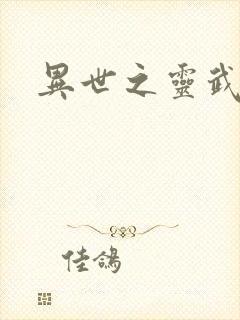 異世之靈武
佳鴿